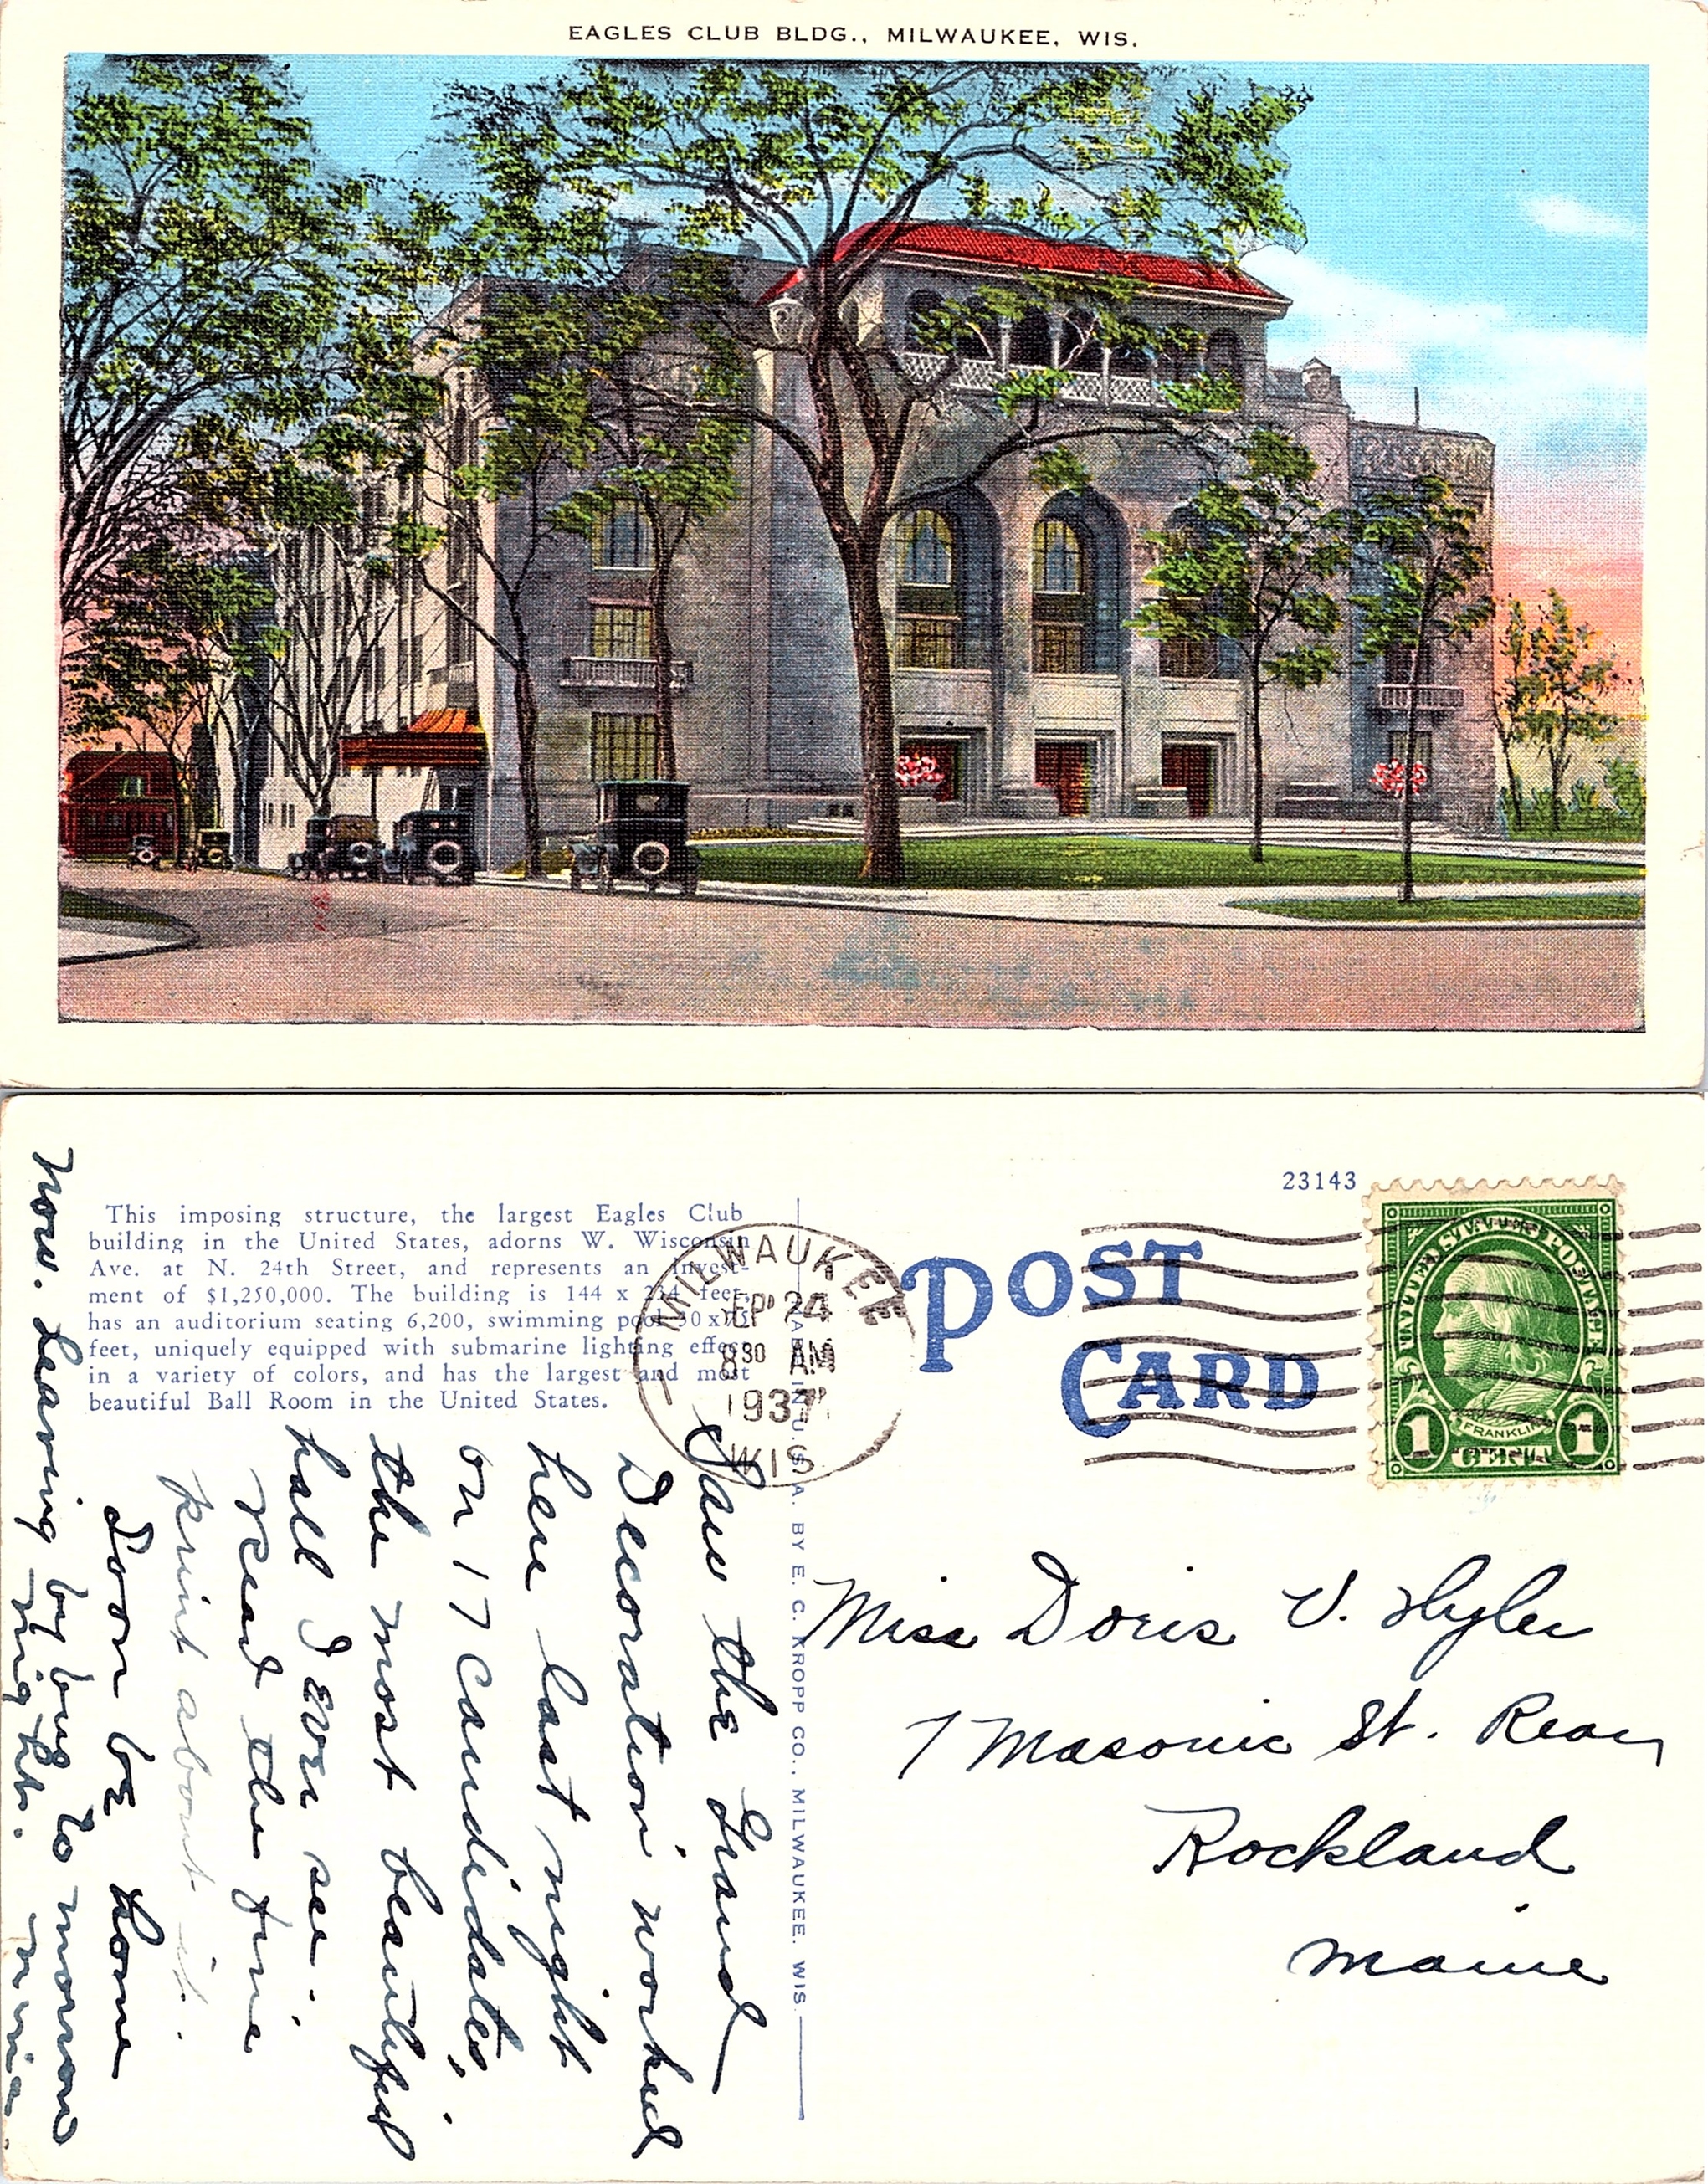 EAGLES CLUB BLDG., MILWAUKEE, WIS.
This imposing structure, the largest Eagles Club
building in the United States, adorns W. Wisconsin
Ave. at N. 24th Street, and represents an invest-
ment of $1,250,000. The building is 144 x feet,
has an auditorium seating 6,200, swimming pool 30 x 75
feet, uniquely equipped with submarine lighting effect
in a variety of colors, and has the largest and most
beautiful Ball Room in the United States.
MILWAUKEE
SEP 24
8 30 AM
1937
WIS.
POST
CARD
23143
UNITED STATES POSTAGE
FRANKLIN
1 CENT 1
MADE IN U.S.A. BY E. C. KROPP CO., MILWAUKEE, WIS.
Saw the Grand
Decoration worked
here last night
on 17 candidates,
the most beautiful
hall I ever see.
Read the fine
print about it.
Soon be home
now. Leaving by bus to morrow
night.
Miss Doris V. Hyler
7 Masonic St. Rear
Rockland
Maine